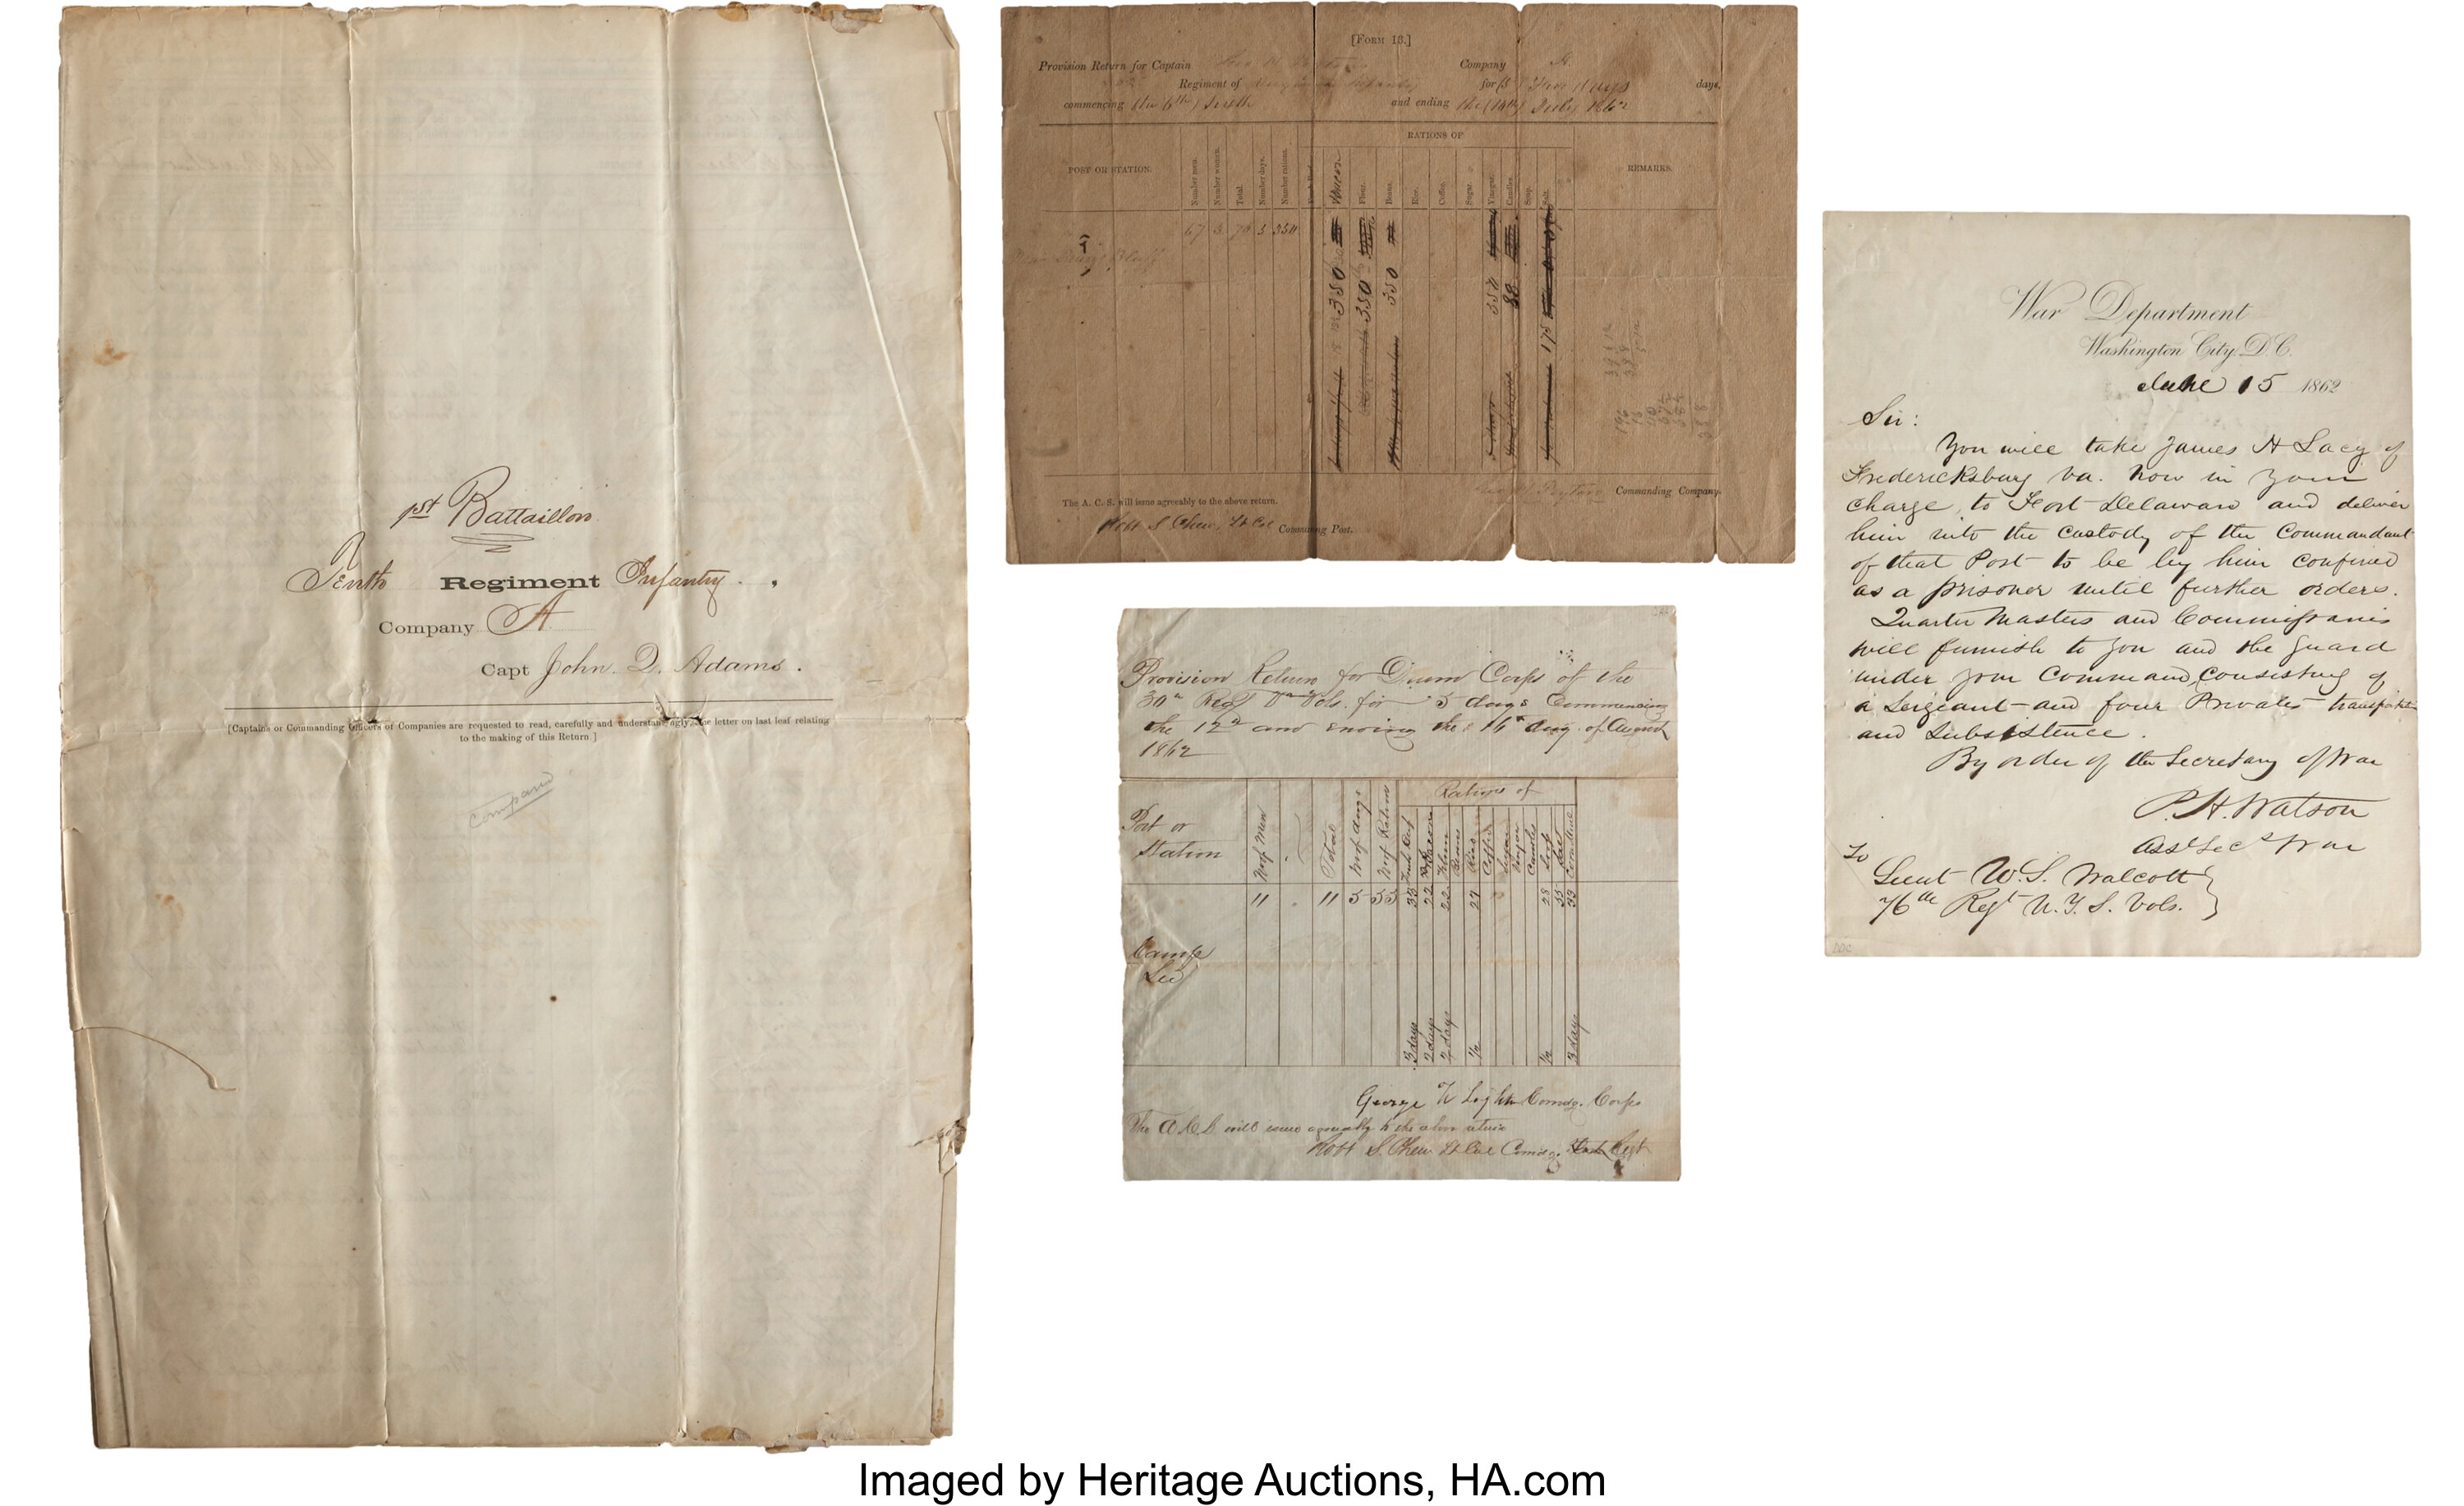 1st Battaillon
Tenth Regiment Infantry.
Company A
Capt John. Q. Adams.
[Captains or Commanding Officers of Companies are requested to read, carefully and understandingly, the letter on last leaf relating
to the making of this Return.]
Compared
[Form 13.]
Provision Return for Captain Company
Regiment of Infantry for days.
commencing the 6th and ending the (10th) July 1862
RATIONS OF
POST OR STATION.
Number men.
Number women.
Total.
Number days.
Number rations.
Fresh Beef.
Bacon
Flour.
Beans.
Rice.
Coffee.
Sugar.
Vinegar.
Candles.
Soap.
Salt.
REMARKS.
67 3 70 5 350
350 350 350 175
Bluff
Peyton Commanding Company.
The A. C. S. will issue agreeably to the above return.
Robt S Chew, Lt Col Commanding Post.
Provision Return for Drum Corps of the
30th Regt Va Vols. for 5 days Commencing
the 12th and ending the 16th day of August
1862
Rations of
Post or
Station
No of Men
Total
No of days
No of Rations
Fresh Beef
Bacon
Flour
Beans
Rice
Coffee
Sugar
Candles
Soap
Salt
Corn Meal
11 11 5 55 33 22 22 27 28 55 33
Camp
Lee
3 days 2 days 2 days ½ ½ 3 days
George Comdg. Corps
The A C S will issue agreeably to the above return
Robt S. Chew Lt Col Comdg. Regt
War Department
Washington City, D.C.
June 15 1862
Sir:
You will take James H Lacy of
Fredericksburg Va. now in your
charge, to Fort Delaware and deliver
him into the custody of the Commandant
of that Post to be by him confined
as a prisoner until further orders.
Quarter Masters and Commissaries
will furnish to you and the guard
under your command, consisting of
a Sergeant and four Privates transportation
and subsistence.
By order of the Secretary of War
P. H. Watson
Asst Secy War
To
Lieut W. S. Walcott
76th Regt N. Y. S. Vols.
Imaged by Heritage Auctions, HA.com